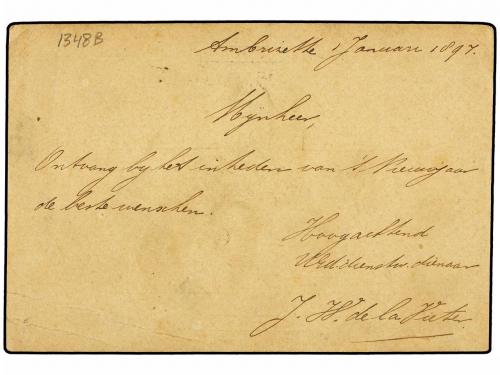 1348B
Ambrizette 1 Januari 1897.
Mijnheer,
Ontvang by het intreden van 't Nieuwjaar
de beste wenschen.
Hoogachtend
UEd. dienstw. dienaar
J. W. de la